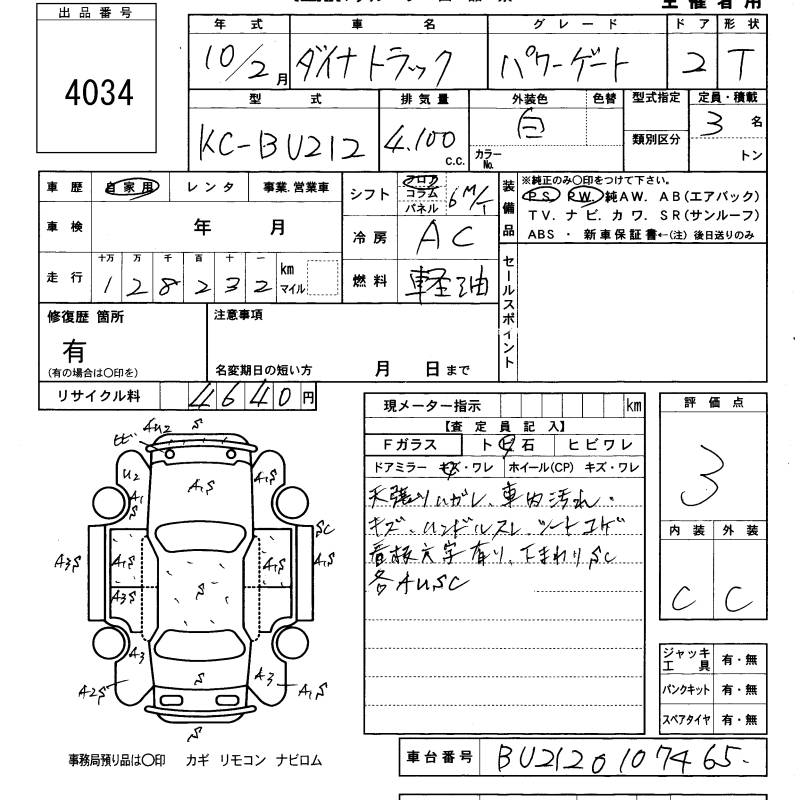 出品番号
4034
主催者用
年式 車名 グレード ドア 形状
10/2月 ダイナトラック パワーゲート 2 T
型式 排気量 外装色 色替 型式指定 定員・積載
KC-BU212 4.100 c.c. 白 カラーNo. 類別区分 3名
トン
車歴 自家用 レンタ 事業.営業車
シフト フロア コラム パネル 6M/T
装備品 ※純正のみ〇印をつけて下さい。
PS. PW. 純AW. AB(エアバック)
TV. ナビ. カワ. SR(サンルーフ)
ABS ・ 新車保証書←(注) 後日送りのみ
車検 年 月
冷房 AC
走行 十万 万 千 百 十 一
128232 km マイル
燃料 軽油
セールスポイント
修復歴 箇所
有
(有の場合は〇印を)
注意事項
名変期日の短い方 月 日まで
リサイクル料 4640円
現メーター指示 km
【査定員記入】
Fガラス ト ビ 石 ヒビワレ
ドアミラー キズ・ワレ ホイール(CP) キズ・ワレ
天張りハガレ、車内汚れ・
キズ、ハンドルスレ、シートコゲ
看板文字有り、下まわりSC
各AUSC
評価点
3
内装 外装
C C
ジャッキ工具 有・無
パンクキット 有・無
スペアタイヤ 有・無
AU2 S
ヒビ
U2 A1S A1S
A1
S
SC
A3S A1S A1S A1S
A3S S
A3 A3
A2S S A1S
S
事務局預り品は〇印 カギ リモコン ナビロム
車台番号 BU2120107465.